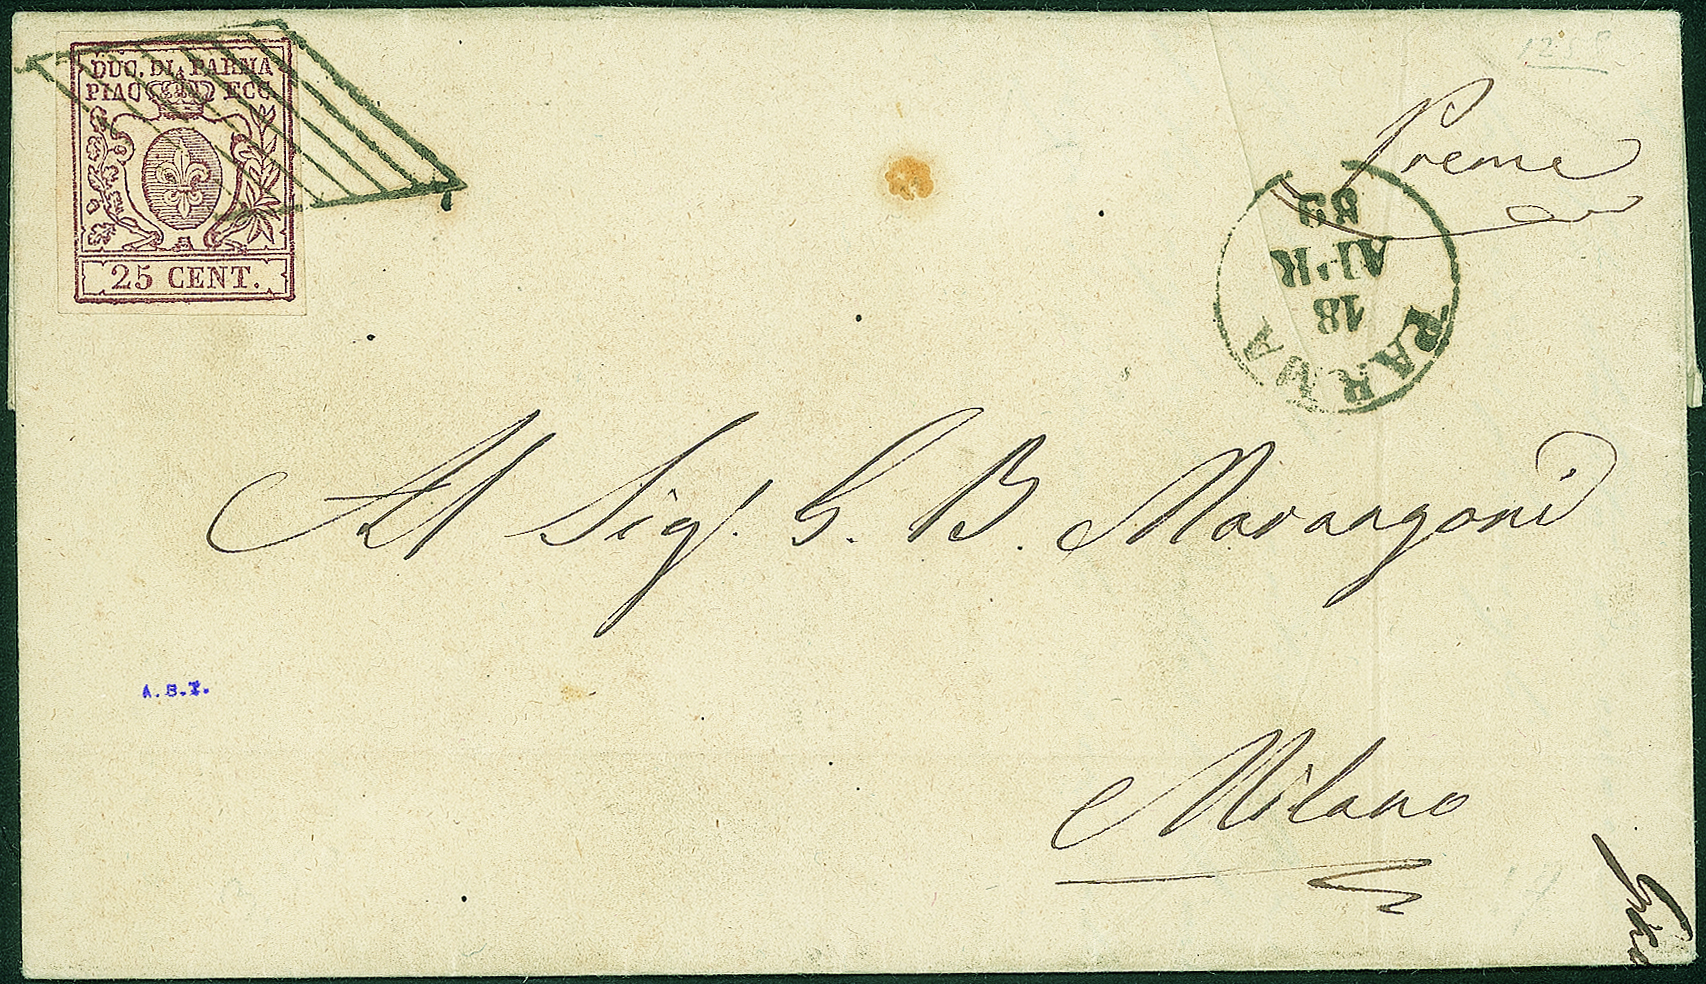 DUC. DI PARMA
PIAC. ECC.
25 CENT.
Preme
PARMA
18
APR
Al Sig.r G. B. Marangoni
A. B. T.
Milano